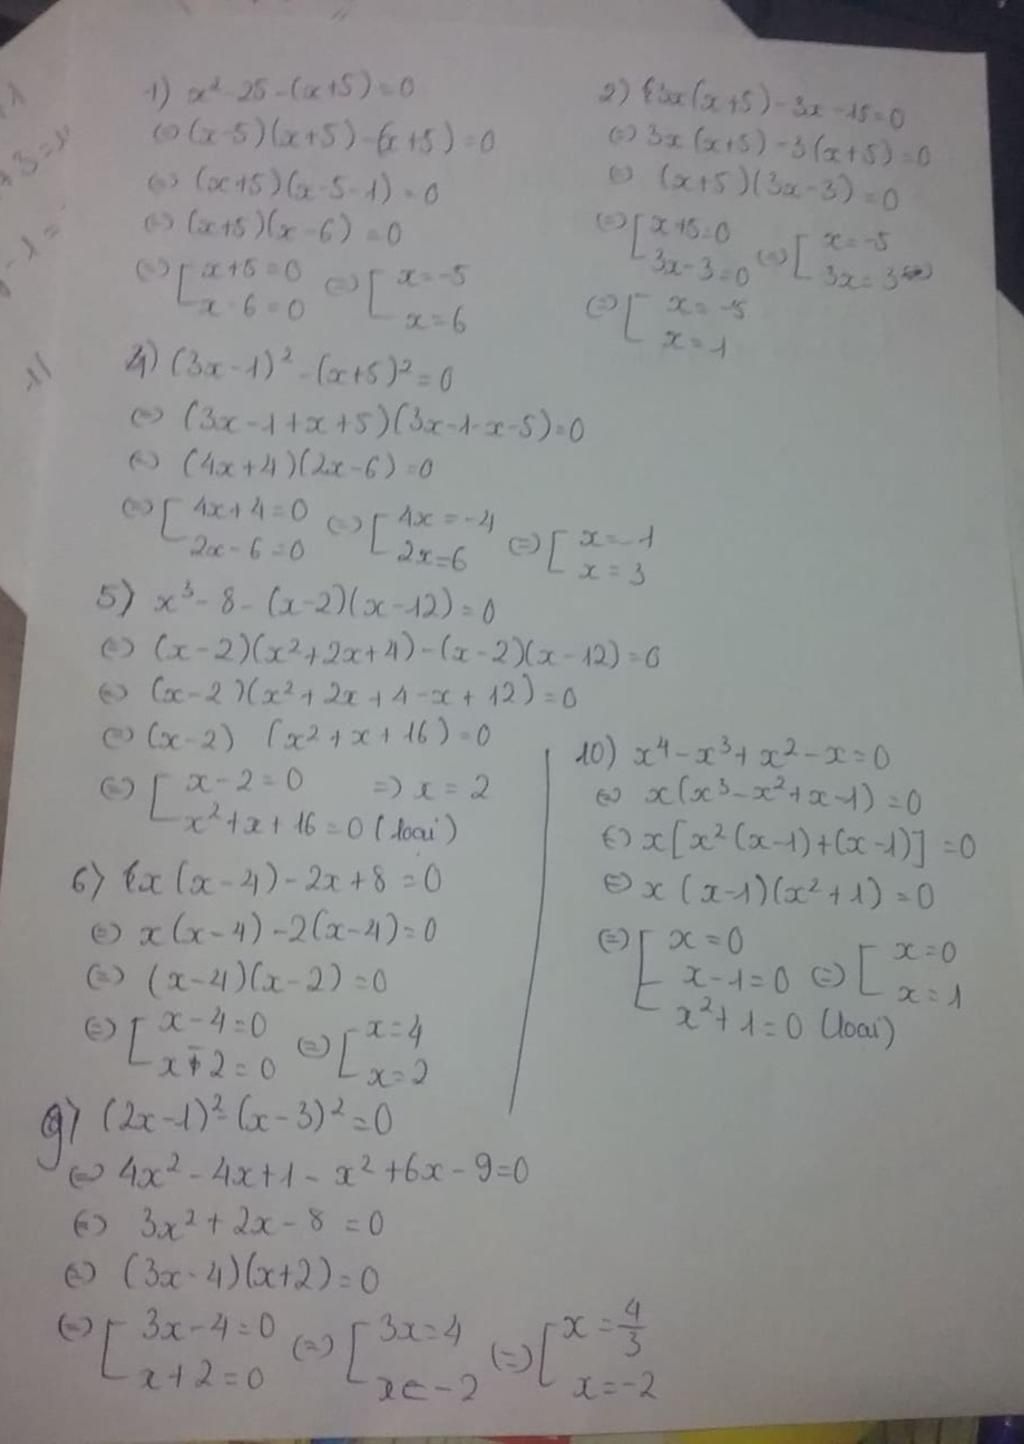 1) x² - 25 - (x+5) = 0
⇔ (x-5)(x+5) - (x+5) = 0
⇔ (x+5)(x-5-1) = 0
⇔ (x+5)(x-6) = 0
⇔ [ x+5=0 ⇔ [ x=-5
x-6=0 x=6
2) 3x(x+5) - 3x - 15 = 0
⇔ 3x(x+5) - 3(x+5) = 0
⇔ (x+5)(3x-3) = 0
⇔ [ x+5=0 ⇔ [ x=-5
3x-3=0 3x=3
⇔ [ x=-5
x=1
4) (3x-1)² - (x+5)² = 0
⇔ (3x-1+x+5)(3x-1-x-5) = 0
⇔ (4x+4)(2x-6) = 0
⇔ [ 4x+4=0 ⇔ [ 4x=-4 ⇔ [ x=-1
2x-6=0 2x=6 x=3
5) x³ - 8 - (x-2)(x-12) = 0
⇔ (x-2)(x²+2x+4) - (x-2)(x-12) = 0
⇔ (x-2)(x²+2x+4-x+12) = 0
⇔ (x-2) (x²+x+16) = 0
⇔ [ x-2=0 ⇒ x=2
x²+x+16=0 (loai)
6) x(x-4) - 2x + 8 = 0
⇔ x(x-4) - 2(x-4) = 0
⇔ (x-4)(x-2) = 0
⇔ [ x-4=0 ⇔ [ x=4
x-2=0 x=2
10) x⁴ - x³ + x² - x = 0
⇔ x(x³-x²+x-1) = 0
⇔ x[x²(x-1)+(x-1)] = 0
⇔ x(x-1)(x²+1) = 0
⇔ [ x=0 ⇔ [ x=0
x-1=0 x=1
x²+1=0 (loai)
9) (2x-1)² - (x-3)² = 0
⇔ 4x² - 4x + 1 - x² + 6x - 9 = 0
⇔ 3x² + 2x - 8 = 0
⇔ (3x-4)(x+2) = 0
⇔ [ 3x-4=0 ⇔ [ 3x=4 ⇔ [ x=4/3
x+2=0 x=-2 x=-2